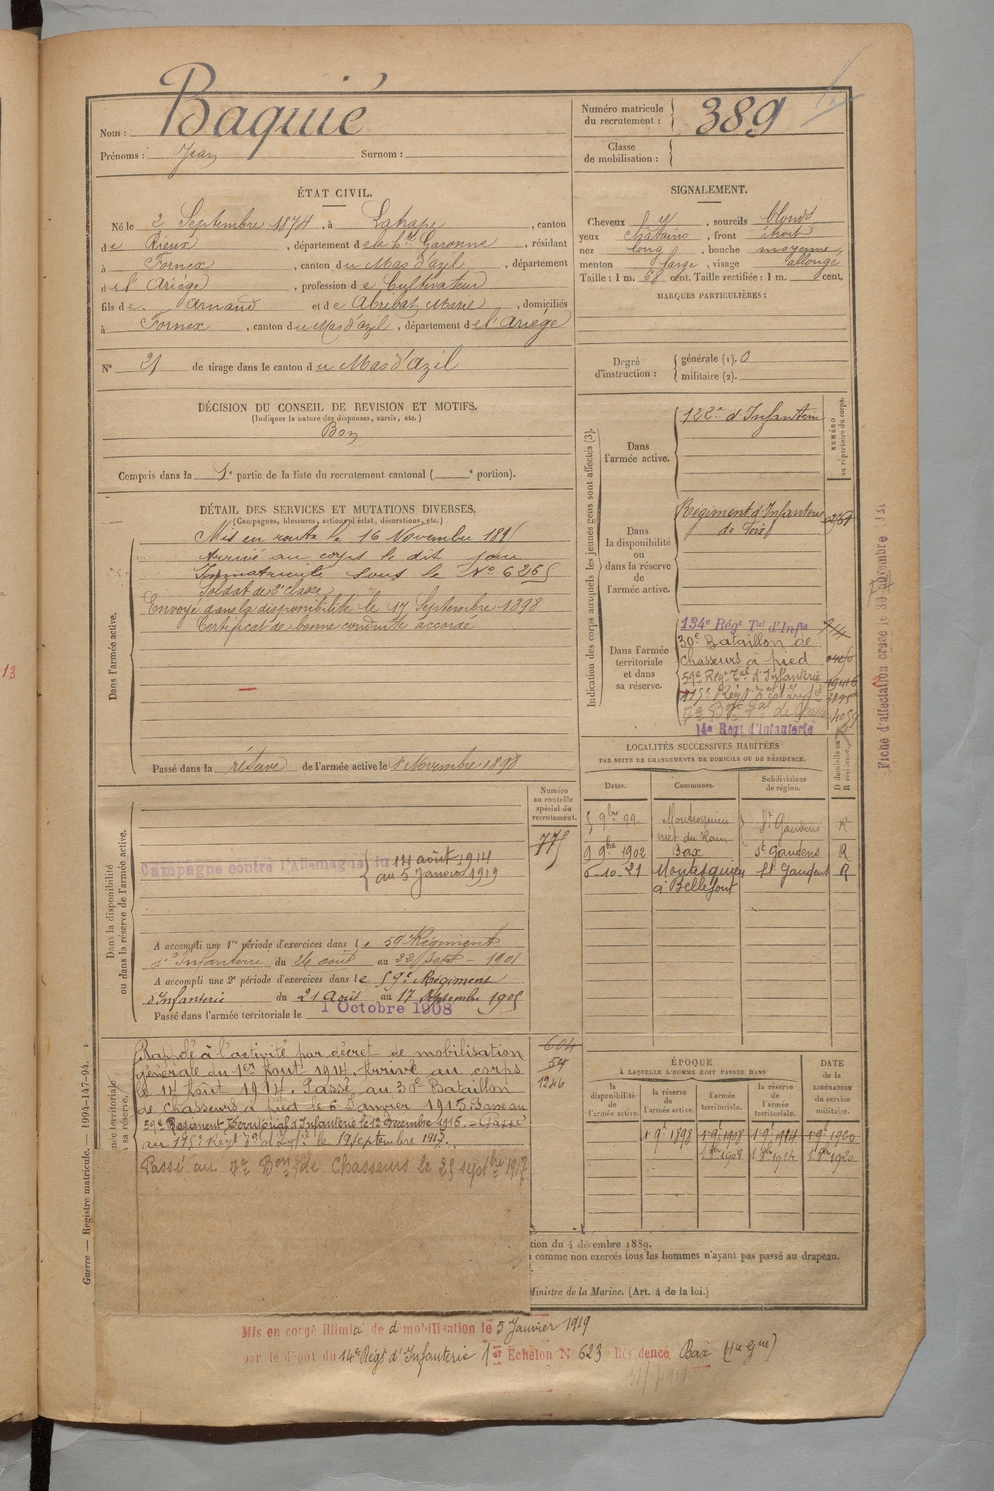 Nom : Baquié
Prénoms : Jean Surnom :
Numéro matricule du recrutement : 389
Classe de mobilisation :
ÉTAT CIVIL.
Né le 2 Septembre 1874, à Lahape, canton
de Rieux, département de la Hte Garonne, résidant
à Fornex, canton du Mas d'azil, département
de l'Ariège, profession de Cultivateur
fils de Arnaud et de Abribat Marie, domiciliés
à Fornex, canton du Mas d'azil, département de l'Ariège
N° 21 de tirage dans le canton du Mas d'azil
SIGNALEMENT.
Cheveux et, sourcils blonds
yeux châtains, front étroit
nez long, bouche moyenne
menton large, visage allongé
Taille : 1 m. 68 cent. Taille rectifiée : 1 m. cent.
MARQUES PARTICULIÈRES :
Degré d'instruction : générale (1). 0
militaire (2).
DÉCISION DU CONSEIL DE REVISION ET MOTIFS.
(Indiquer la nature des dispenses, sursis, etc.)
Bon
Compris dans la 1e partie de la liste du recrutement cantonal ( e portion).
DÉTAIL DES SERVICES ET MUTATIONS DIVERSES.
(Campagnes, blessures, actions d'éclat, décorations, etc.)
Dans l'armée active.
Mis en route le 16 Novembre 189
Arrivé au corps le dit jour
Immatriculé sous le N° 6265
Soldat de 2e classe
Envoyé dans la disponibilité le 17 Septembre 1898
Certificat de bonne conduite accordé
Passé dans la réserve de l'armée active le 1 Novembre 1898
Indication des corps auxquels les jeunes gens sont affectés (3).
NUMÉRO au répertoire du corps.
Dans l'armée active.
122e d'Infanterie
Dans la disponibilité ou dans la réserve de l'armée active.
Régiment d'Infanterie
de Foix
Dans l'armée territoriale et dans sa réserve.
134e Régt Tal d'Infie
30e Bataillon de
chasseurs à pied
59e Régt Tal d'Infanterie
14e Regt d'Infanterie
Fiche d'affectation créée le 30 Novembre
LOCALITÉS SUCCESSIVES HABITÉES
PAR SUITE DE CHANGEMENTS DE DOMICILE OU DE RÉSIDENCE.
Dates. Communes. Subdivisions de région. D domicile ou R résidence.
5 9bre 99 Montesquieu St Gaudens R
9 9bre 1902 Bax St Gaudens R
6-10-21 Montesquieu St Gaudens R
Numéro au contrôle spécial du recrutement.
775
Dans la disponibilité ou dans la réserve de l'armée active.
Campagne contre l'Allemagne du 14 août 1914
au 5 Janvier 1919
A accompli une 1re période d'exercices dans le 59e Régiment
d'Infanterie du 26 août au 22 Sept - 1901
A accompli une 2e période d'exercices dans le 59e Régiment
d'Infanterie du 21 Août au 17 Septembre 1905
Passé dans l'armée territoriale le 1 Octobre 1908
Rappelé à l'activité par décret de mobilisation
générale du 1er Août 1914. Arrivé au corps
le 14 Août 1914. Passé au 30e Bataillon
de chasseurs à pied le 6 Janvier 1915. Passé au
59e Régiment Territorial d'Infanterie le 1er Décembre 1916. - Passé
au 175e Régt Tal d'Infie le 19 septembre 1917.
Passé au 7e Bon Tal de Chasseurs le 25 septbre 1917
604
54
1246
ÉPOQUE
À LAQUELLE L'HOMME DOIT PASSER DANS
la disponibilité de l'armée active. la réserve de l'armée active. l'armée territoriale. la réserve de l'armée territoriale.
DATE de la LIBÉRATION du service militaire.
1 9e 1898 1 9e 1908 1 9e 1914 1 9e 1920
1 8bre 1908 1 8bre 1914 1 8bre 1920
tion du 4 décembre 1889.
comme non exercés tous les hommes n'ayant pas passé au drapeau.
Ministre de la Marine. (Art. 4 de la loi.)
Guerre — Registre matricule. 1994-147-94.
Mis en congé illimité de démobilisation le 5 Janvier 1919
par le dépôt du 14e Régt d'Infanterie 1er Echelon N° 623 Résidence Bax (Hte Gne)
13